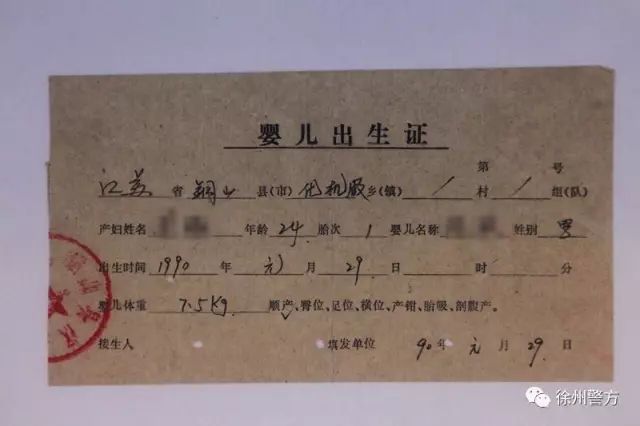 婴儿出生证
第 号
江苏省铜山县(市)化机股乡(镇)/村/组(队)
产妇姓名 年龄24胎次1婴儿名称 性别男
出生时间1990年元月29日 时 分
婴儿体重7.5Kg 顺产、臀位、足位、横位、产钳、胎吸、剖腹产。
接生人 填发单位 90年元月29日
徐州警方